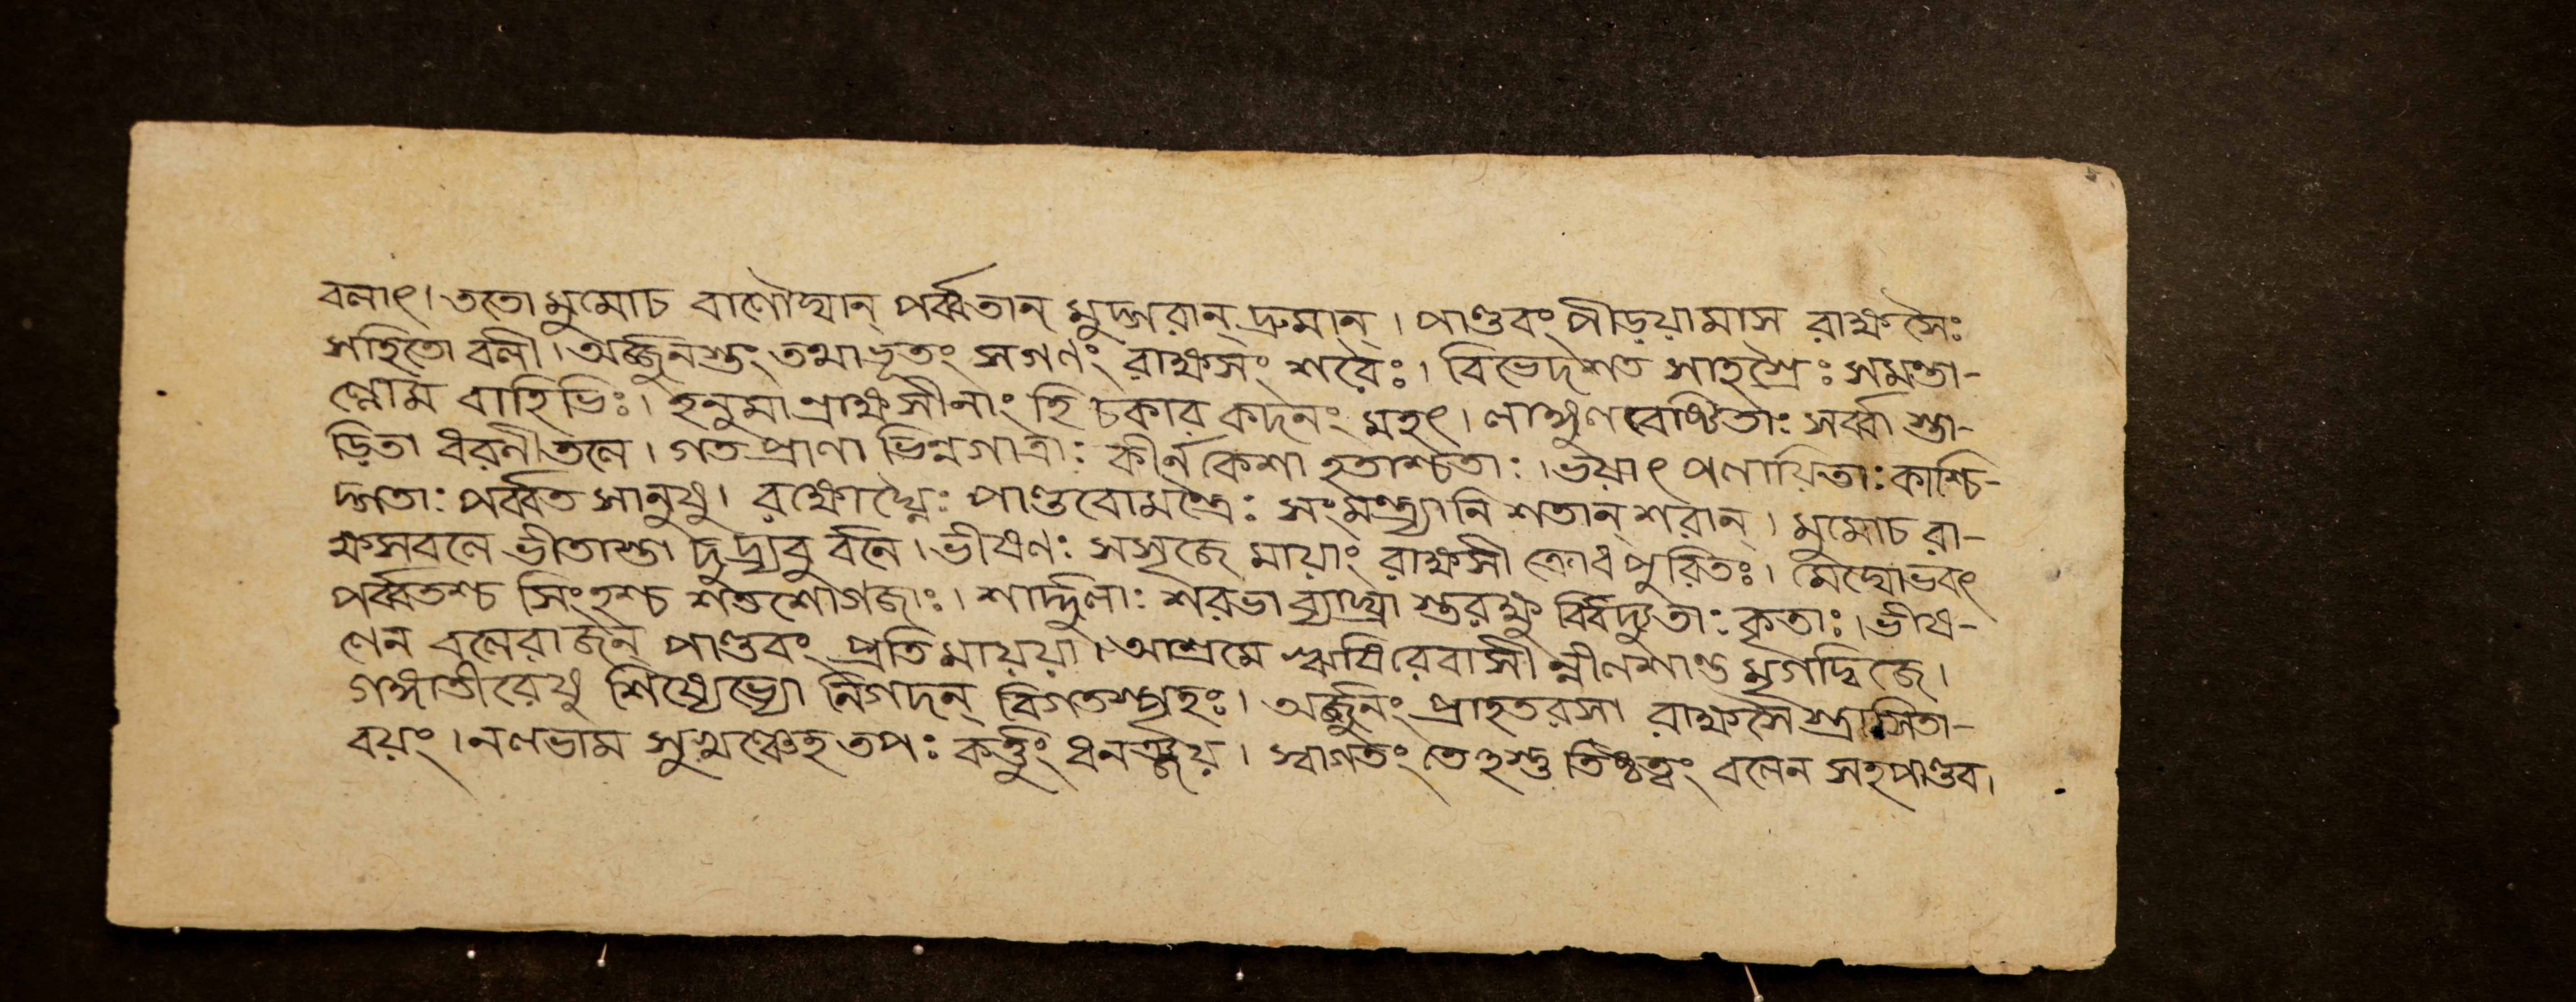 বলাৎ। ততো মুমোচ বাণৌঘান্ পর্ব্বতান্ মুদ্গরান্ দ্রুমান্। পাণ্ডবং পীড়য়ামাস রাক্ষসৈঃ
সহিতো বলী। অর্জ্জুনস্তং তথাভূতং সগণং রাক্ষসং শরৈঃ। বিভেদ শত সাহস্রৈঃ সমন্তা-
ল্লোম বাহিভিঃ। হনুমান্রাক্ষসীনাং হি চকার কদনং মহৎ। লাঙ্গুল বেষ্টিতাঃ সর্ব্বা স্তা-
ড়িতা ধরনীতলে। গতপ্রাণা ভিন্নগাত্রাঃ কীর্ন কেশা হতাশ্চতাঃ। ভয়াৎ পলায়িতাঃ কাশ্চি-
দ্গতাঃ পর্ব্বত সানুষু। রক্ষোঘ্নৈঃ পাণ্ডবোমন্ত্রৈঃ সংমন্ত্র্যানি শতান্ শরান্। মুমোচ রা-
ক্ষসবলে ভীতাস্তা দুদ্রুবু র্বনে। ভীষণঃ সসৃজে মায়াং রাক্ষসী ক্রোধপুরিতঃ। মেঘোভবৎ
পর্ব্বতশ্চ সিংহশ্চ শতশোগজাঃ। শার্দ্দুলাঃ শরভা ব্যাঘ্রা স্তরক্ষু র্বিবিদ্যুতাঃ কৃতাঃ। ভীষ-
ণেন বলেরাজন্ পাণ্ডবং প্রতিমায়য়া। আশ্রমে ঋষিরেবাসী ন্নীলশাণ্ড মৃগদ্বিজে।
গঙ্গাতীরেষু শিষ্যেভ্যো নিগদন্ বিগতস্পৃহঃ। অর্জ্জুনং প্রাহতরসা রাক্ষসৈ স্ত্রাসিতা-
বয়ং। নলভাম সুখঞ্চেহ তপঃ কর্ত্তুং ধনঞ্জয়। স্বাগতং তেহস্তু তিষ্ঠত্বং বলেন সহপাণ্ডব।